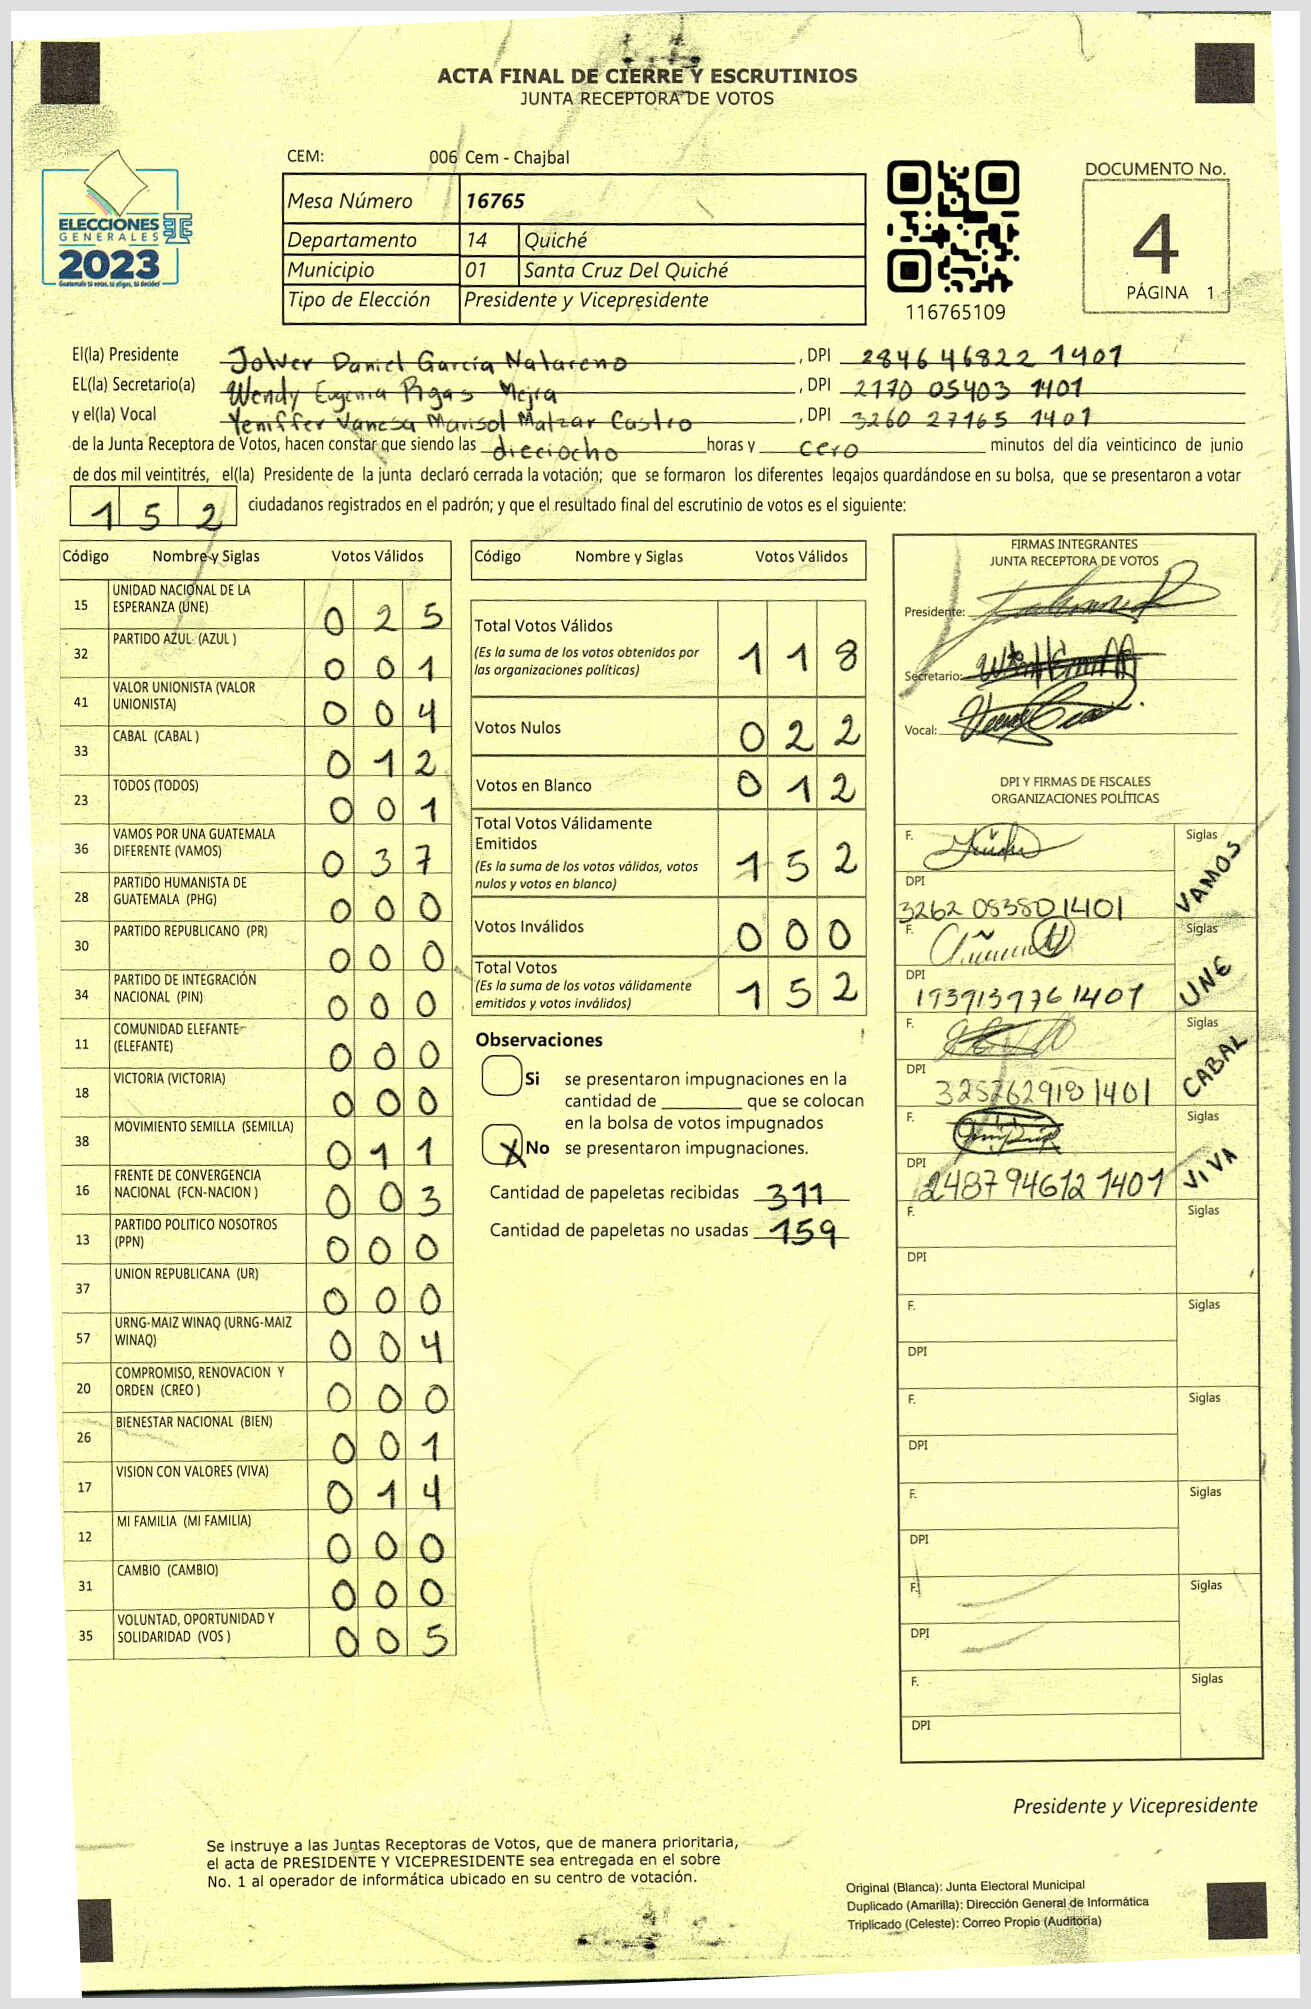 ACTA FINAL DE CIERRE Y ESCRUTINIOS
JUNTA RECEPTORA DE VOTOS
CEM: 006 Cem - Chajbal
ELECCIONES
GENERALES
2023
Guatemala tú votas, tú eliges, tú decides
Mesa Número 16765
Departamento 14 Quiché
Municipio 01 Santa Cruz Del Quiché
Tipo de Elección Presidente y Vicepresidente
116765109
DOCUMENTO No.
4
PÁGINA 1
El(la) Presidente Jolver Daniel García Natareno, DPI 2846 46822 1401
EL(la) Secretario(a) Wendy Eugenia Rigas Mejra, DPI 2170 05403 1401
y el(la) Vocal Yeniffer Vanesa Marisol Matzar Castro, DPI 3260 27165 1401
de la Junta Receptora de Votos, hacen constar que siendo las dieciocho horas y cero minutos del día veinticinco de junio
de dos mil veintitrés, el(la) Presidente de la junta declaró cerrada la votación; que se formaron los diferentes legajos guardándose en su bolsa, que se presentaron a votar
152 ciudadanos registrados en el padrón; y que el resultado final del escrutinio de votos es el siguiente:
Código Nombre y Siglas Votos Válidos
15 UNIDAD NACIONAL DE LA
ESPERANZA (UNE) 025
32 PARTIDO AZUL (AZUL ) 001
41 VALOR UNIONISTA (VALOR
UNIONISTA) 004
33 CABAL (CABAL ) 012
23 TODOS (TODOS) 001
36 VAMOS POR UNA GUATEMALA
DIFERENTE (VAMOS) 037
28 PARTIDO HUMANISTA DE
GUATEMALA (PHG) 000
30 PARTIDO REPUBLICANO (PR) 000
34 PARTIDO DE INTEGRACIÓN
NACIONAL (PIN) 000
11 COMUNIDAD ELEFANTE
(ELEFANTE) 000
18 VICTORIA (VICTORIA) 000
38 MOVIMIENTO SEMILLA (SEMILLA) 011
16 FRENTE DE CONVERGENCIA
NACIONAL (FCN-NACION ) 003
13 PARTIDO POLITICO NOSOTROS
(PPN) 000
37 UNION REPUBLICANA (UR) 000
57 URNG-MAIZ WINAQ (URNG-MAIZ
WINAQ) 004
20 COMPROMISO, RENOVACION Y
ORDEN (CREO ) 000
26 BIENESTAR NACIONAL (BIEN) 001
17 VISION CON VALORES (VIVA) 014
12 MI FAMILIA (MI FAMILIA) 000
31 CAMBIO (CAMBIO) 000
35 VOLUNTAD, OPORTUNIDAD Y
SOLIDARIDAD (VOS ) 005
Código Nombre y Siglas Votos Válidos
Total Votos Válidos 118
(Es la suma de los votos obtenidos por
las organizaciones políticas)
Votos Nulos 022
Votos en Blanco 012
Total Votos Válidamente
Emitidos 152
(Es la suma de los votos válidos, votos
nulos y votos en blanco)
Votos Inválidos 000
Total Votos 152
(Es la suma de los votos válidamente
emitidos y votos inválidos)
Observaciones
Si se presentaron impugnaciones en la
cantidad de ________ que se colocan
en la bolsa de votos impugnados
X No se presentaron impugnaciones.
Cantidad de papeletas recibidas 311
Cantidad de papeletas no usadas 159
FIRMAS INTEGRANTES
JUNTA RECEPTORA DE VOTOS
Presidente:
Secretario:
Vocal:
DPI Y FIRMAS DE FISCALES
ORGANIZACIONES POLÍTICAS
F. Siglas VAMOS
DPI 3262 083801401
F. Siglas UNE
DPI 193913976 1401
F. Siglas CABAL
DPI 325262918 1401
F. Siglas VIVA
DPI 248794612 1401
F. Siglas
DPI
F. Siglas
DPI
F. Siglas
DPI
F. Siglas
DPI
F. Siglas
DPI
F. Siglas
DPI
Presidente y Vicepresidente
Se instruye a las Juntas Receptoras de Votos, que de manera prioritaria,
el acta de PRESIDENTE Y VICEPRESIDENTE sea entregada en el sobre
No. 1 al operador de informática ubicado en su centro de votación.
Original (Blanca): Junta Electoral Municipal
Duplicado (Amarilla): Dirección General de Informática
Triplicado (Celeste): Correo Propio (Auditoría)